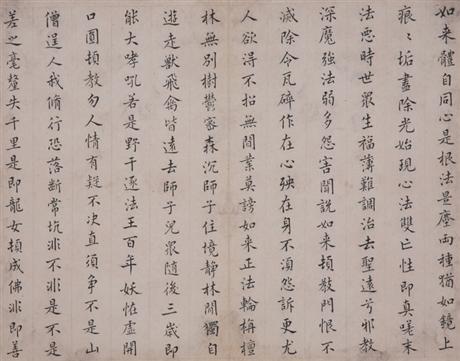 如來體自同心是根法是塵兩種猶如鏡上
痕〻垢盡除光始現心法雙亡性即真嗟末
法惡時世眾生福薄難調治去聖遠兮邪教
深魔強法弱多怨害聞說如來頓教門恨不
滅除令瓦碎作在心殃在身不須怨訴更尤
人欲得不招無間業莫謗如來正法輪栴檀
林無別樹鬱密森沉師子住境靜林閒獨自
遊走獸飛禽皆遠去師子兒眾隨後三歲即
能大哮吼若是野干逐法王百年妖怪虛開
口圓頓教勿人情有疑不決直須爭不是山
僧逞人我脩行恐落斷常坑非不非是不是
差之毫釐失千里是即龍女頓成佛非即善